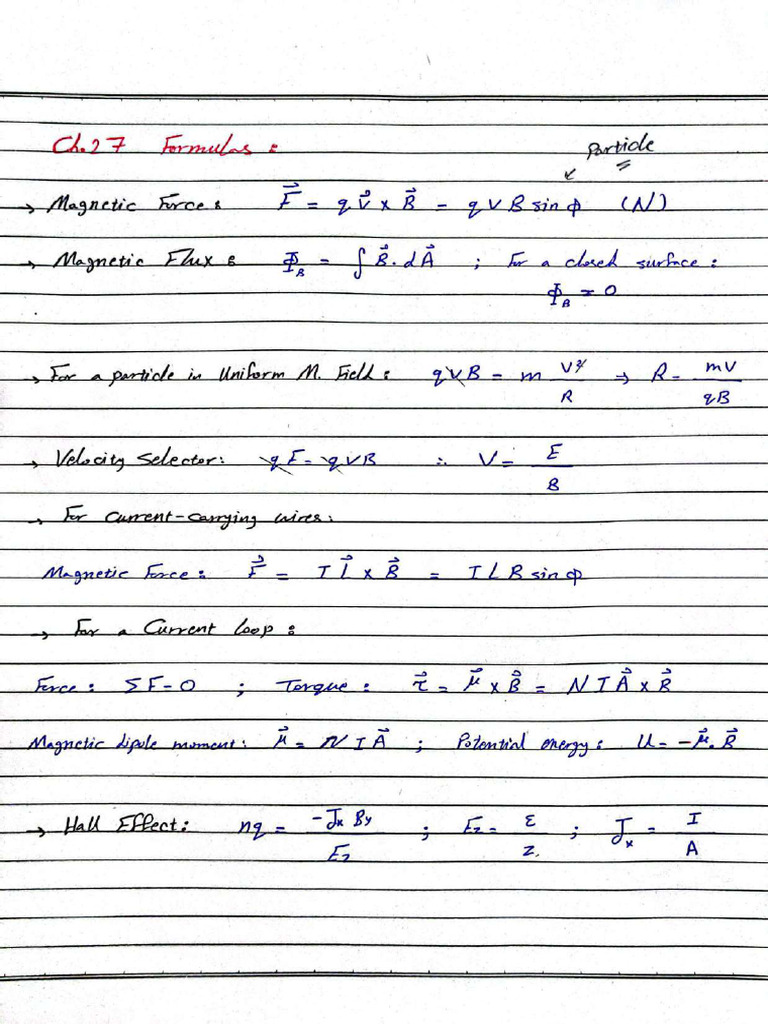 Ch.27 Formulas :
Particle
→ Magnetic Force : F⃗ = q v⃗ × B⃗ = q V B sin φ (N)
→ Magnetic Flux : Φ_B = ∫ B⃗ · dA⃗ ; For a closed surface :
Φ_B = 0
→ For a particle in Uniform M. Field : qVB = m V²/R → R = mV/qB
→ Velocity Selector: qE = qVB ∴ V = E/B
→ For current-carrying wires:
Magnetic Force : F⃗ = I L⃗ × B⃗ = I L B sin φ
→ For a Current loop :
Force : ΣF = 0 ; Torque : τ⃗ = μ⃗ × B⃗ = N I A⃗ × B⃗
Magnetic dipole moment : μ⃗ = N I A⃗ ; Potential energy : U = -μ⃗ · B⃗
→ Hall Effect : nq = -Jx By / Ez ; Ez = ε/z ; Jx = I/A